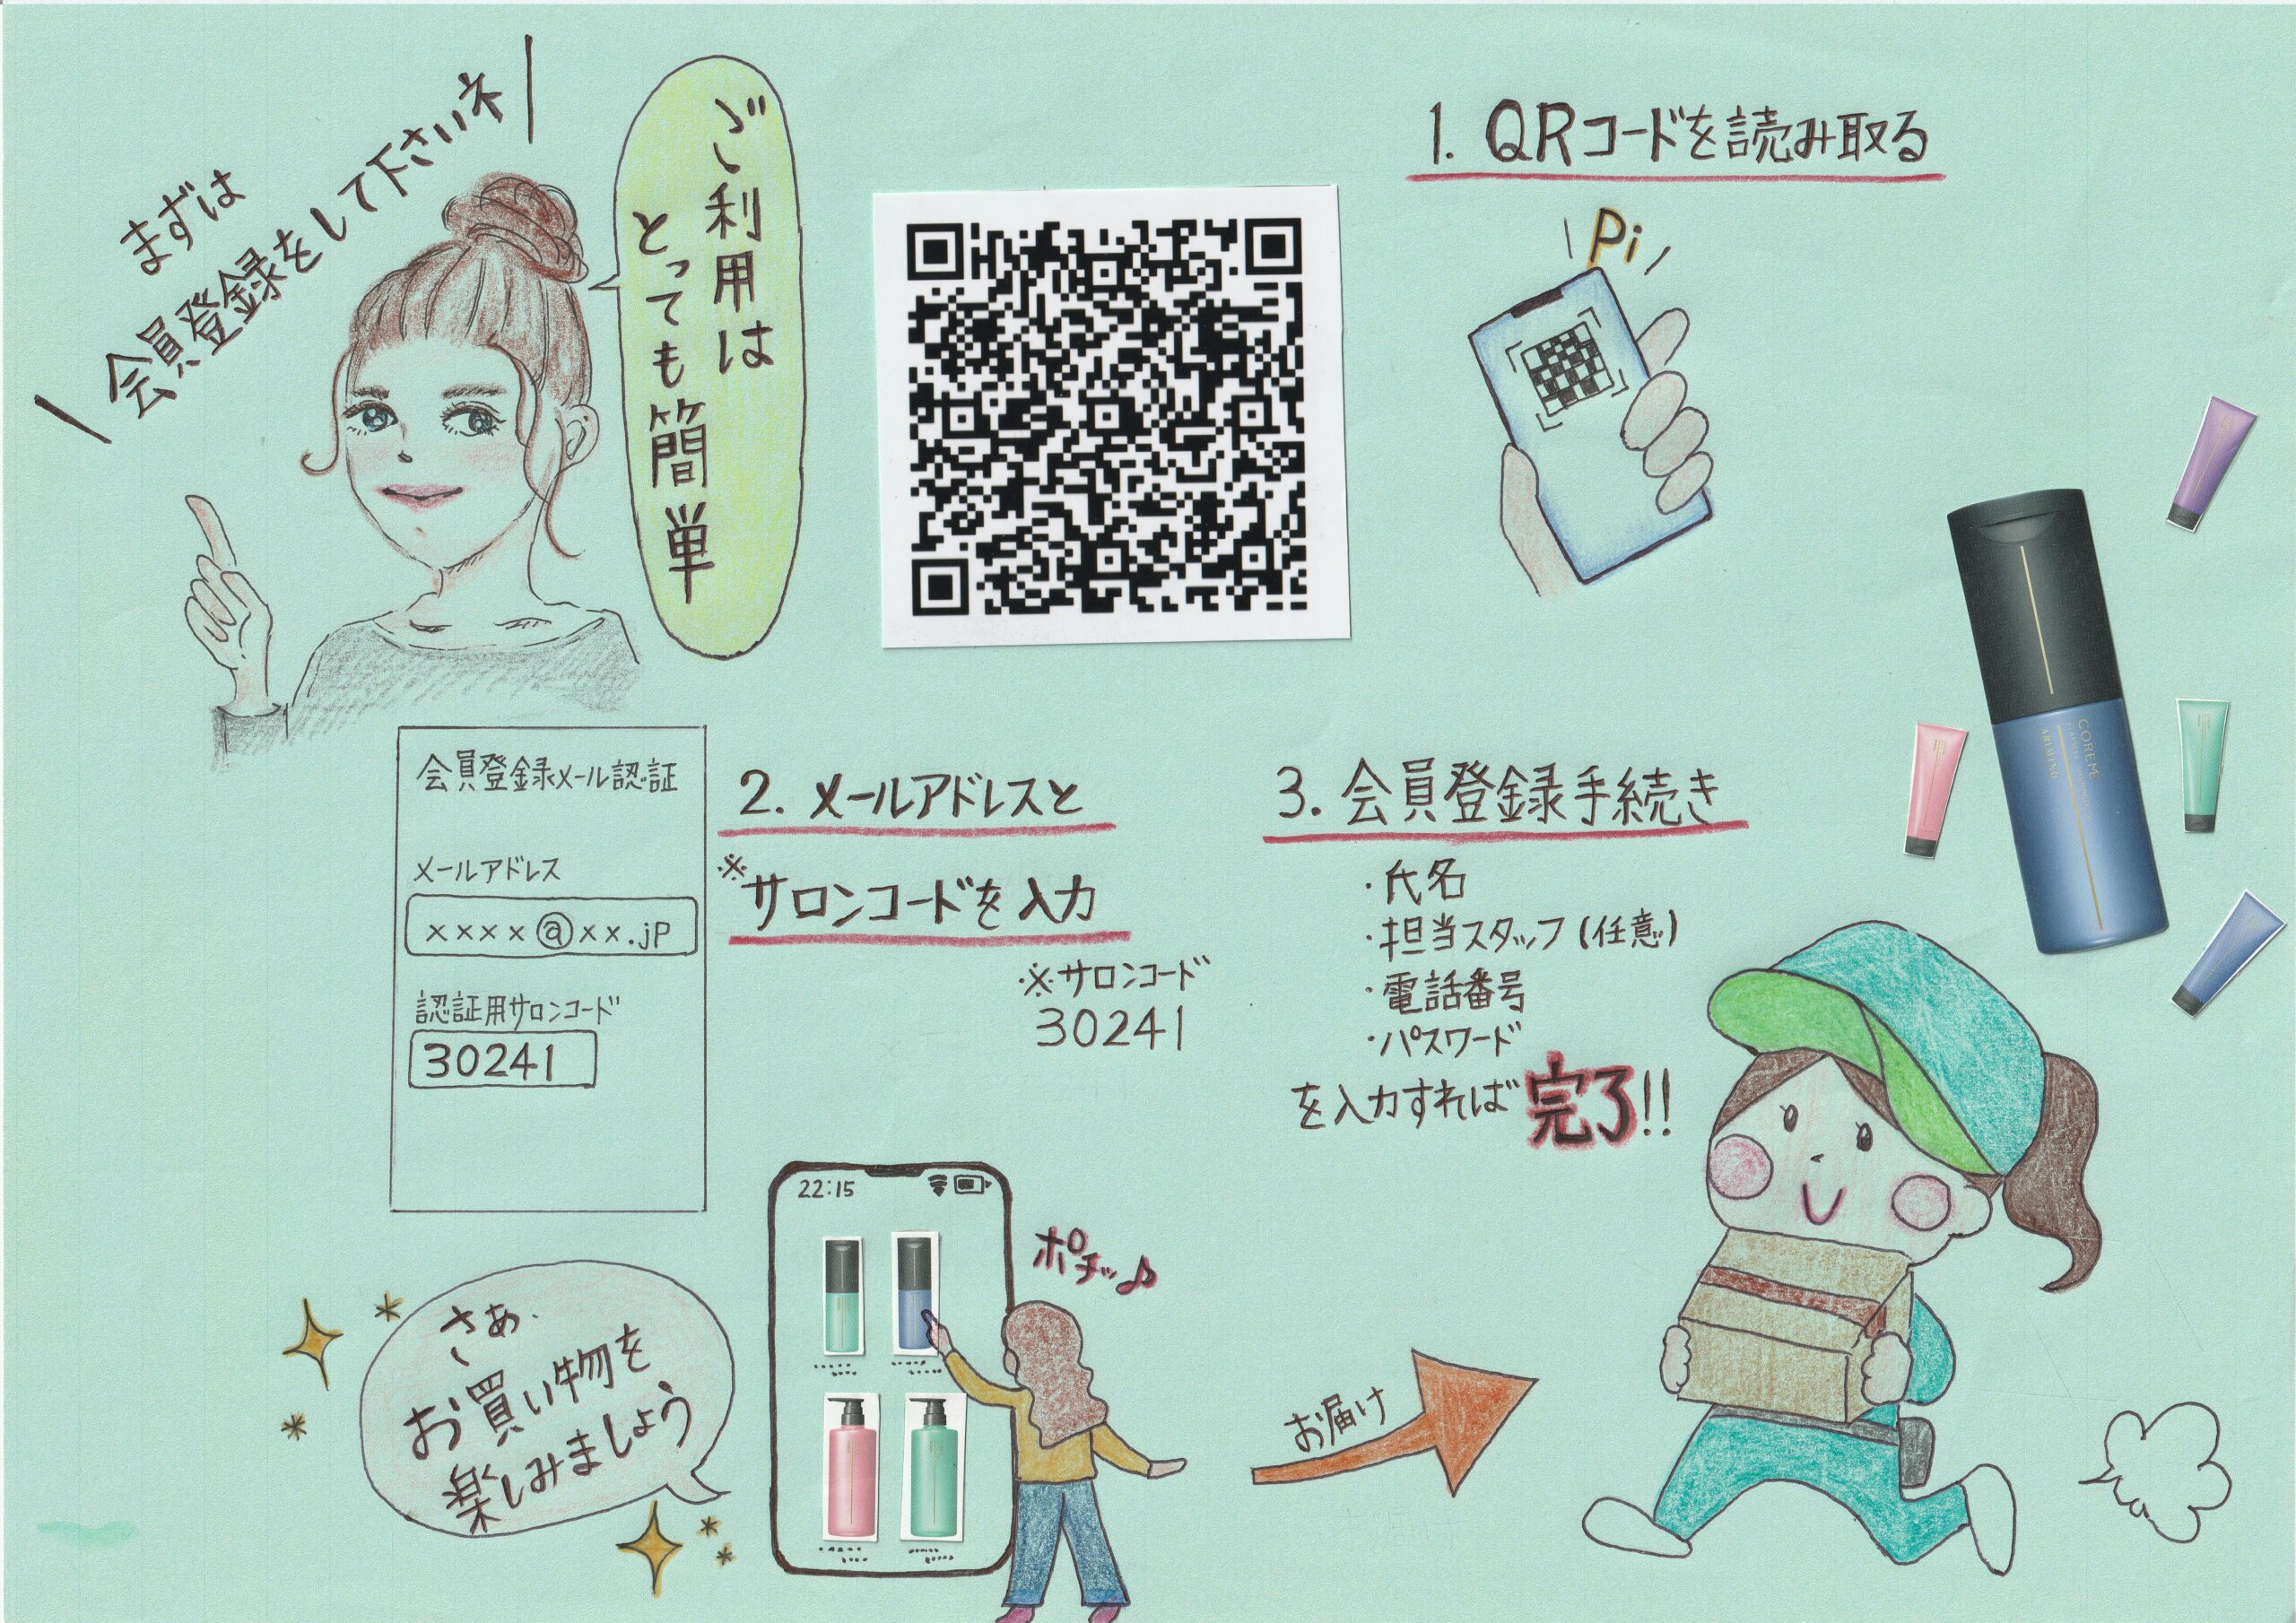 まずは
会員登録をして下さいネ
ご利用は
とっても簡単
1. QRコードを読み取る
Pi
会員登録メール認証
メールアドレス
××××@××.jp
認証用サロンコード
30241
2. メールアドレスと
※サロンコードを入力
※サロンコード
30241
3. 会員登録手続き
・氏名
・担当スタッフ(任意)
・電話番号
・パスワード
を入力すれば完了!!
COREME
さあ、
お買い物を
楽しみましょう
22:15
ポチッ♪
お届け